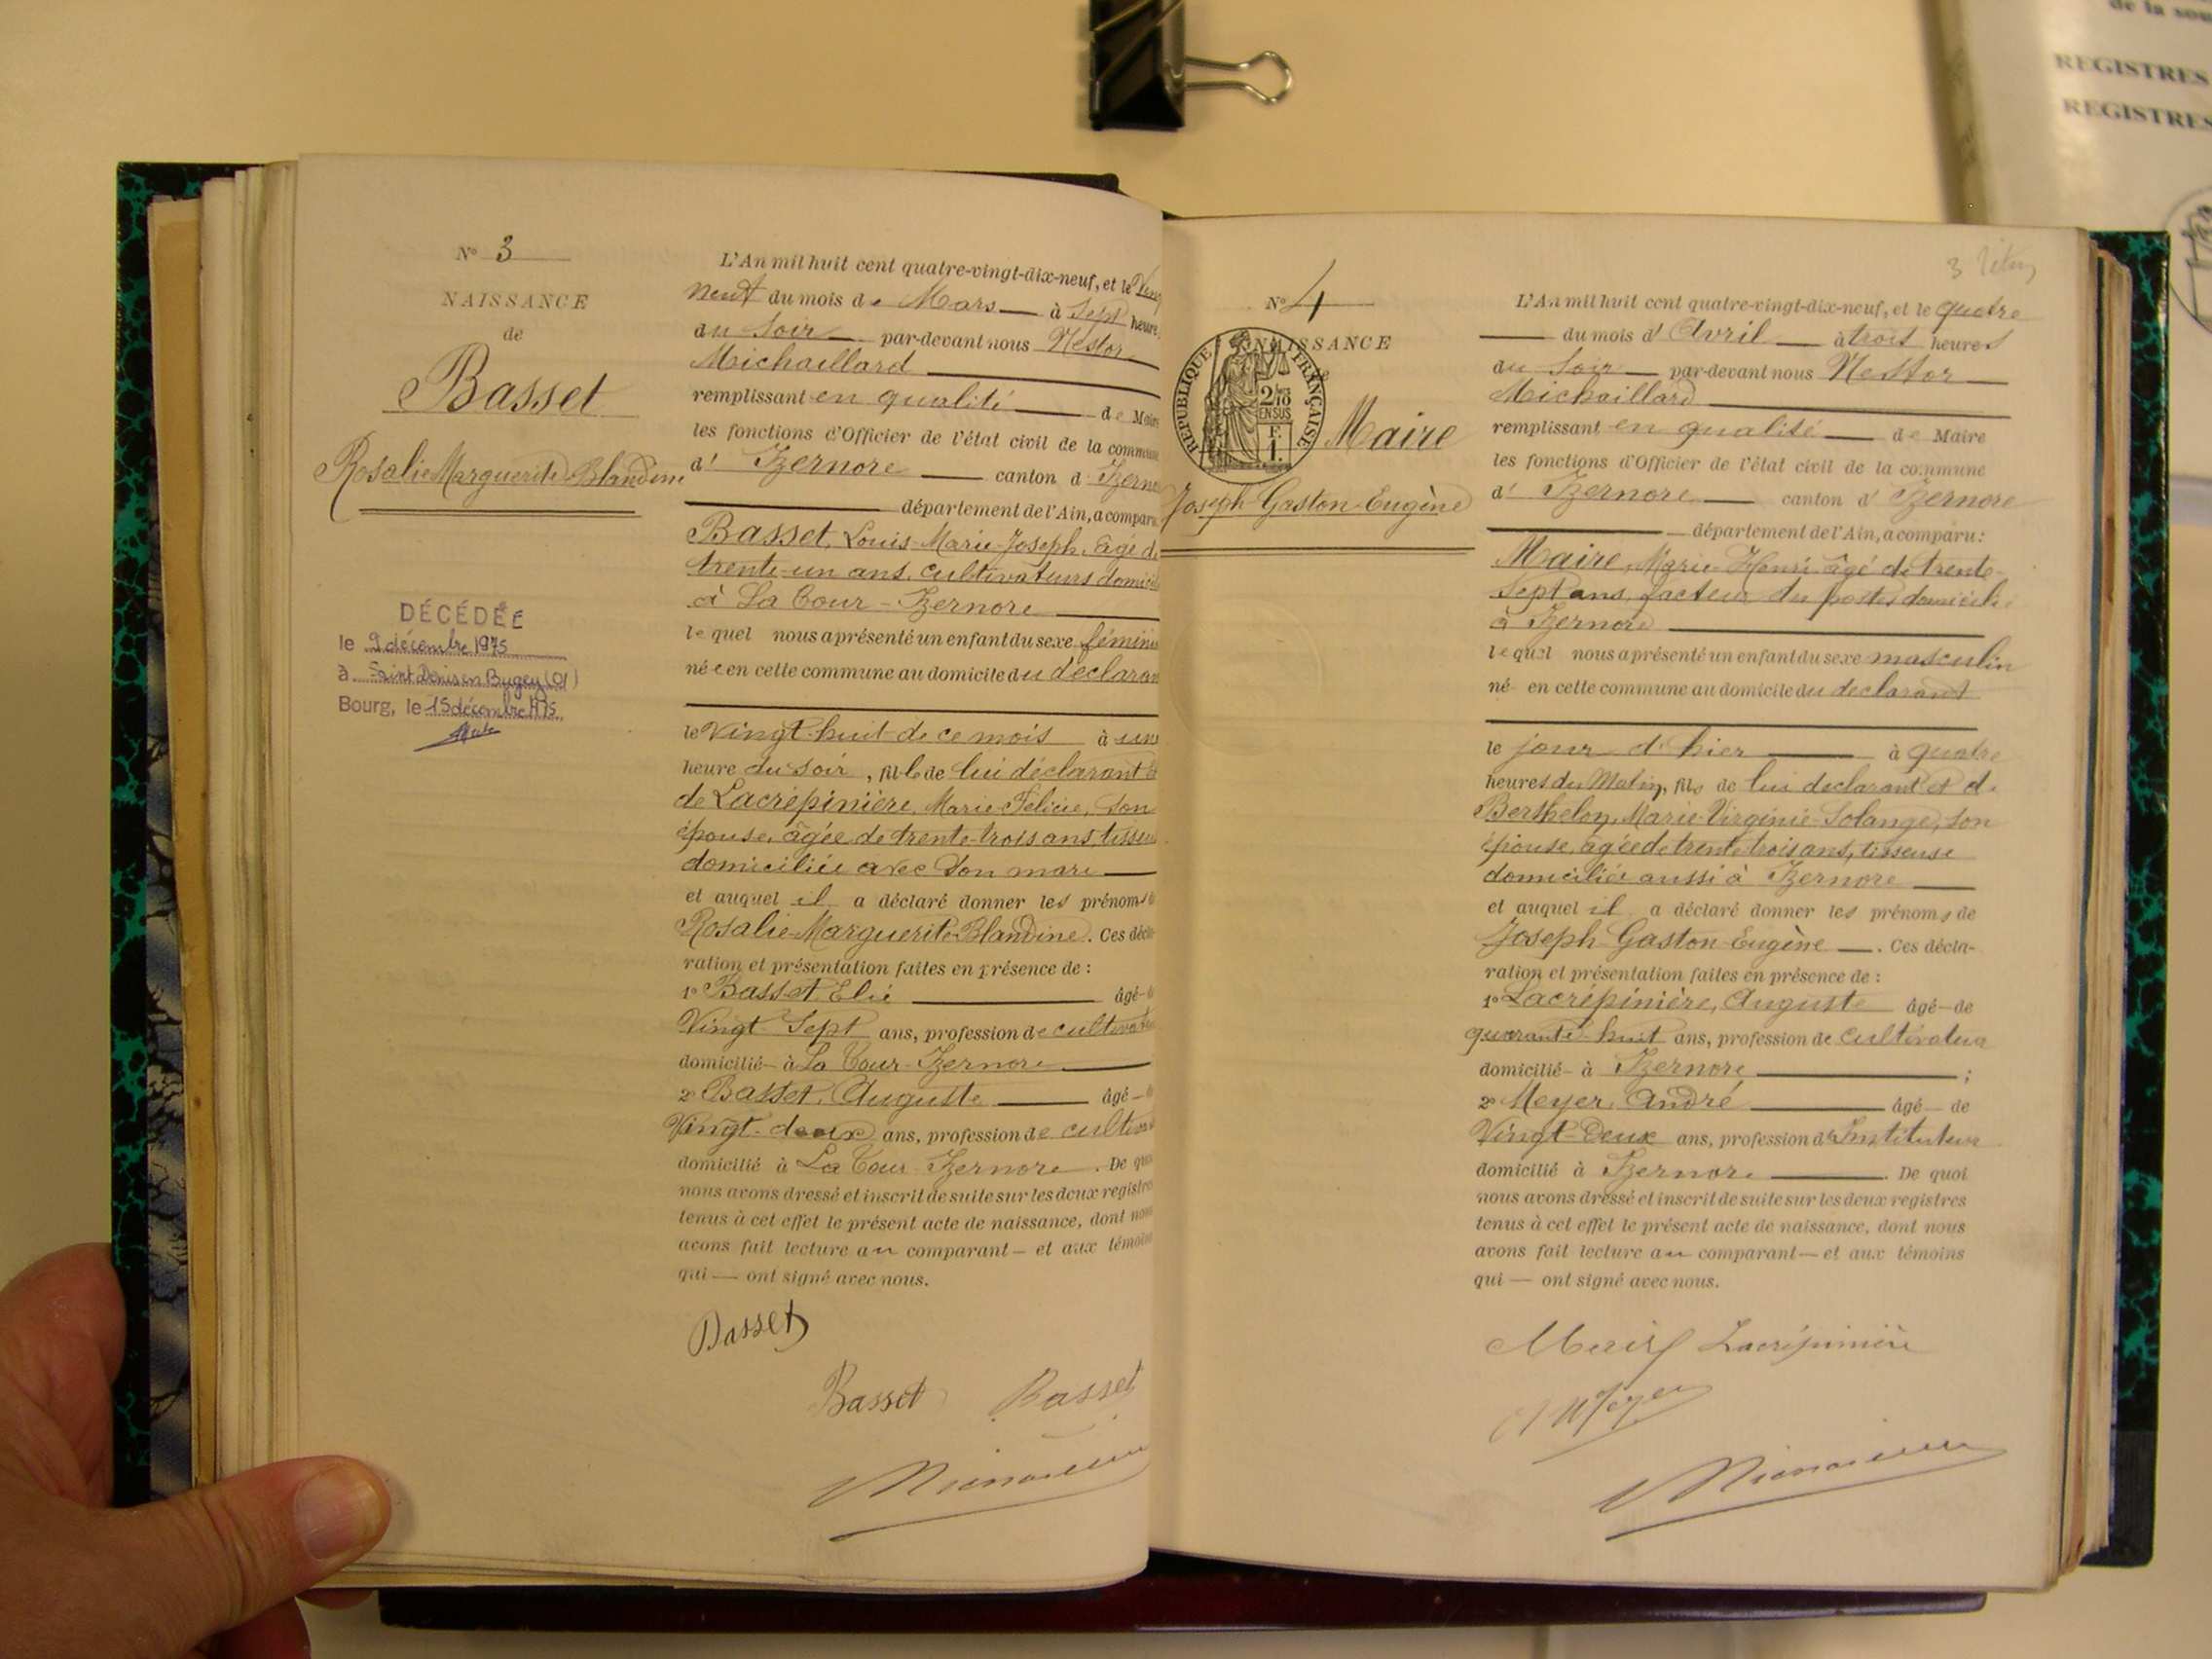 de la sou
REGISTRES
REGISTRES
N° 3
NAISSANCE
de
Basset
Rosalie Marguerite Blandine
DÉCÉDÉE
le 9 décembre 1975
à Saint Denis en Bugey (01)
Bourg, le 15 décembre 1975
L'An mil huit cent quatre-vingt-dix-neuf, et le Vingt
neuf du mois de Mars à Sept heure
du Soir par-devant nous Nestor
Michaillard
remplissant en qualité de Maire
les fonctions d'Officier de l'état civil de la commune
d' Izernore canton d Izerno
département de l'Ain, a comparu
Basset, Louis-Marie-Joseph, âgé de
trente-un ans, cultivateurs domicilié
à La Cour-Izernore
lequel nous a présenté un enfant du sexe féminin
née en cette commune au domicile du déclarant
le Vingt-huit de ce mois à une
heure du soir, fille de lui déclarant &
de Lacrépinière, Marie-Félicie, son
épouse, âgée de trente-trois ans, tisseu
domiciliée avec son mari
et auquel il a déclaré donner les prénoms d
Rosalie-Marguerite-Blandine. Ces décla-
ration et présentation faites en présence de :
1° Basset, Elie âgé-d
Vingt-Sept ans, profession de cultivate
domicilié- à La Cour-Izernore
2° Basset, Auguste âgé-d
Vingt-deux ans, profession de cultiva
domicilié à La Cour-Izernore. De quoi
nous avons dressé et inscrit de suite sur les deux registres
tenus à cet effet le présent acte de naissance, dont nous
avons fait lecture au comparant — et aux témoins
qui — ont signé avec nous.
Basset
Basset Basset
N° 4
NAISSANCE
RÉPUBLIQUE FRANÇAISE
2/10
EN SUS
F.
1.
Maire
Joseph Gaston Eugène
L'An mil huit cent quatre-vingt-dix-neuf, et le quatre
du mois d' Avril à trois heures
du Soir par-devant nous Nestor
Michaillard
remplissant en qualité de Maire
les fonctions d'Officier de l'état civil de la commune
d' Izernore canton d' Izernore
département de l'Ain, a comparu :
Maire, Marie-Henri âgé de trente-
Sept ans, facteur des postes, domicilié
à Izernore
lequel nous a présenté un enfant du sexe masculin
né- en cette commune au domicile du declarant
le jour d'hier à quatre
heures du Matin, fils de lui declarant et de
Berthelon, Marie-Virginie-Solange, son
épouse, agée de trente-trois ans, tisseuse
domiciliée aussi à Izernore
et auquel il a déclaré donner les prénoms de
Joseph-Gaston-Eugène —. Ces décla-
ration et présentation faites en présence de :
1° Lacrépinière, Auguste âgé-de
quarante-huit ans, profession de cultivateur
domicilié- à Izernore ;
2° Meyer, André âgé — de
Vingt-Deux ans, profession d'Instituteur
domicilié à Izernore. De quoi
nous avons dressé et inscrit de suite sur les deux registres
tenus à cet effet le présent acte de naissance, dont nous
avons fait lecture au comparant — et aux témoins
qui — ont signé avec nous.
Maire Lacrépinière
A Meyer